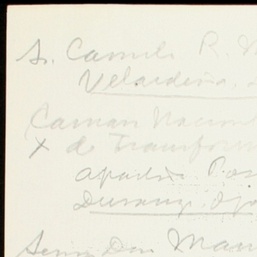 S. Camilo R.
Velardeña,
Camara Nacion
X de Transform
apartado Pos
Durango, Dgo
Senor Don Man